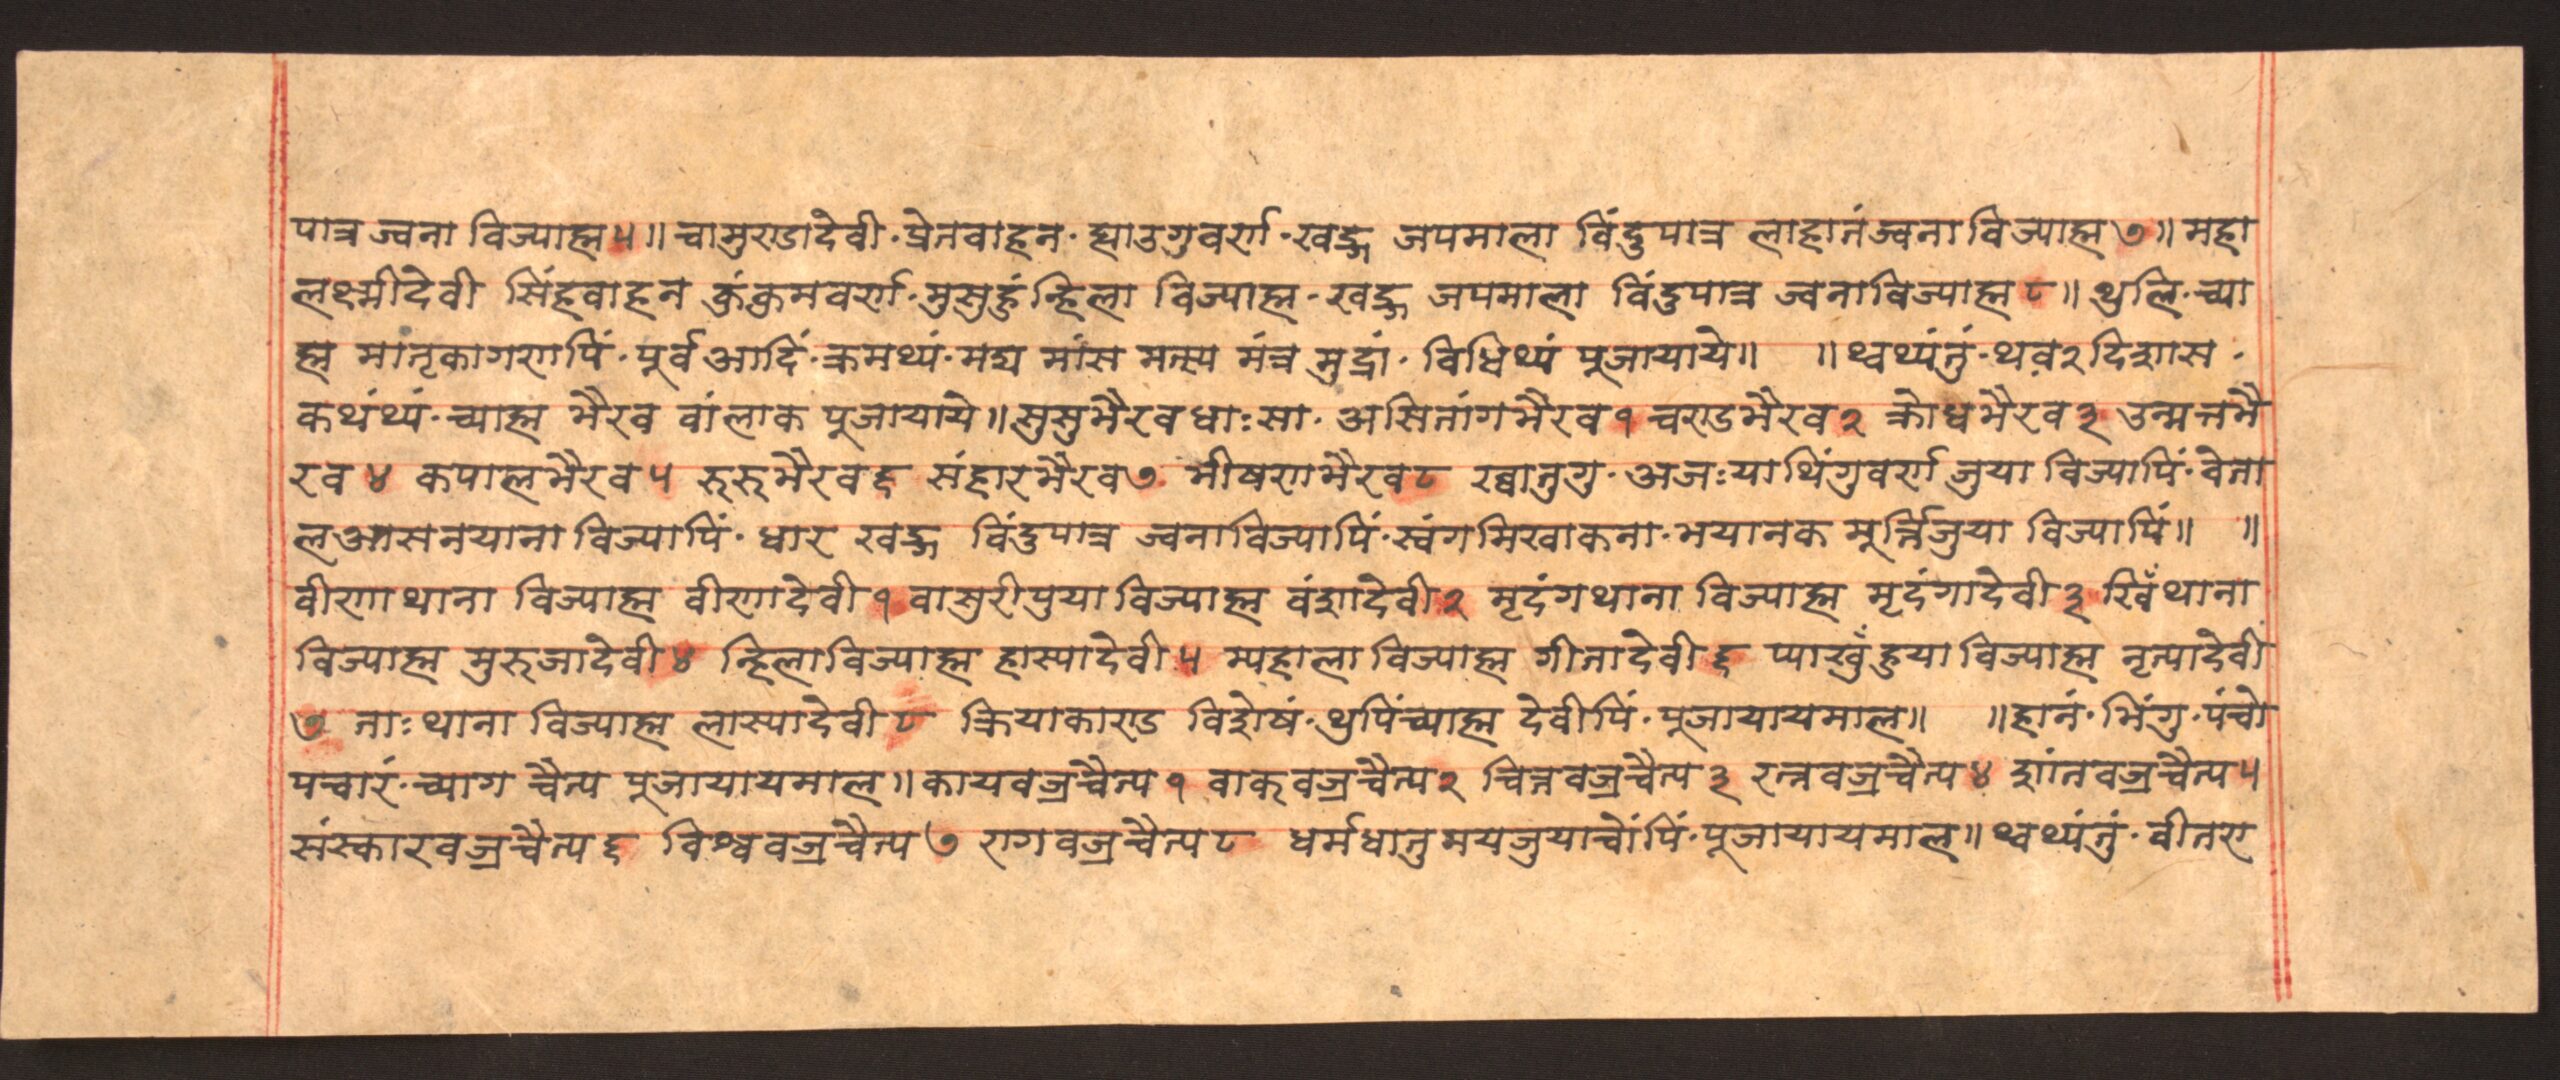 पात्र ज्वना विज्याह्म ५॥ चामुण्डादेवी· प्रेतवाहन· ह्याउगुवर्ण· खड्ग जपमाला विंदुपात्र लाहातंज्वना विज्याह्म ७॥ महा
लक्ष्मीदेवी सिंहवाहन कुंकुमवर्ण· मुसुहुं न्हिला विज्याह्म· खड्ग जपमाला विंदुपात्र ज्वनाविज्याह्म ८॥ थुलि· च्या
ह्म मातृकागणपिं· पूर्व आदिं· क्रमथ्यं· मद्य मांस मत्स्य मंत्र मुद्रां· विधिथ्यं पूजायाये॥ ॥ थ्वथ्यंतुं· थव२ दिशास·
कथंथ्यं· च्याह्म भैरव वांलाक पूजायाये॥ सुसुभैरव धाःसा· असितांगभैरव १ चण्डभैरव २ क्रोधभैरव ३ उन्मत्तभै
रव ४ कपालभैरव ५ रुरुभैरव ६ संहारभैरव ७ भीषणभैरव ८ ख्वातुगु· अजःया थिंगुवर्ण जुया विज्यापिं· वेता
लआसनयाना विज्यापिं· धार खड्ग विंदुपात्र ज्वनाविज्यापिं· स्वंगमिखाकना· भयानक मूर्त्तिजुया विज्यापिं॥ ॥
वीणा थाना विज्याह्म वीणादेवी १ वासुरीपुया विज्याह्म वंशादेवी २ मृदंगथाना विज्याह्म मृदंगादेवी ३ खिँथाना
विज्याह्म मुरुजादेवी ४ न्हिलाविज्याह्म हास्यादेवी ५ म्यहाला विज्याह्म गीतादेवी ६ प्याखुँहुया विज्याह्म नृत्यादेवी
७ ताःथाना विज्याह्म लास्यादेवी ८ क्रियाकाण्ड विशेषं· थुपिंच्याह्म देवीपिं· पूजायायमाल॥ ॥ हानं· भिंगु· पंचो
पचारं· च्याग चैत्य पूजायायमाल॥ कायवज्रचैत्य १ वाक्वज्रचैत्य २ चित्तवज्रचैत्य ३ रत्नवज्रचैत्य ४ शांतवज्रचैत्य ५
संस्कारवज्रचैत्य ६ विश्ववज्रचैत्य ७ रागवज्रचैत्य ८ धर्मधातुमयजुयाचोंपिं· पूजायायमाल॥ थ्वथ्यंतुं· वीतरा